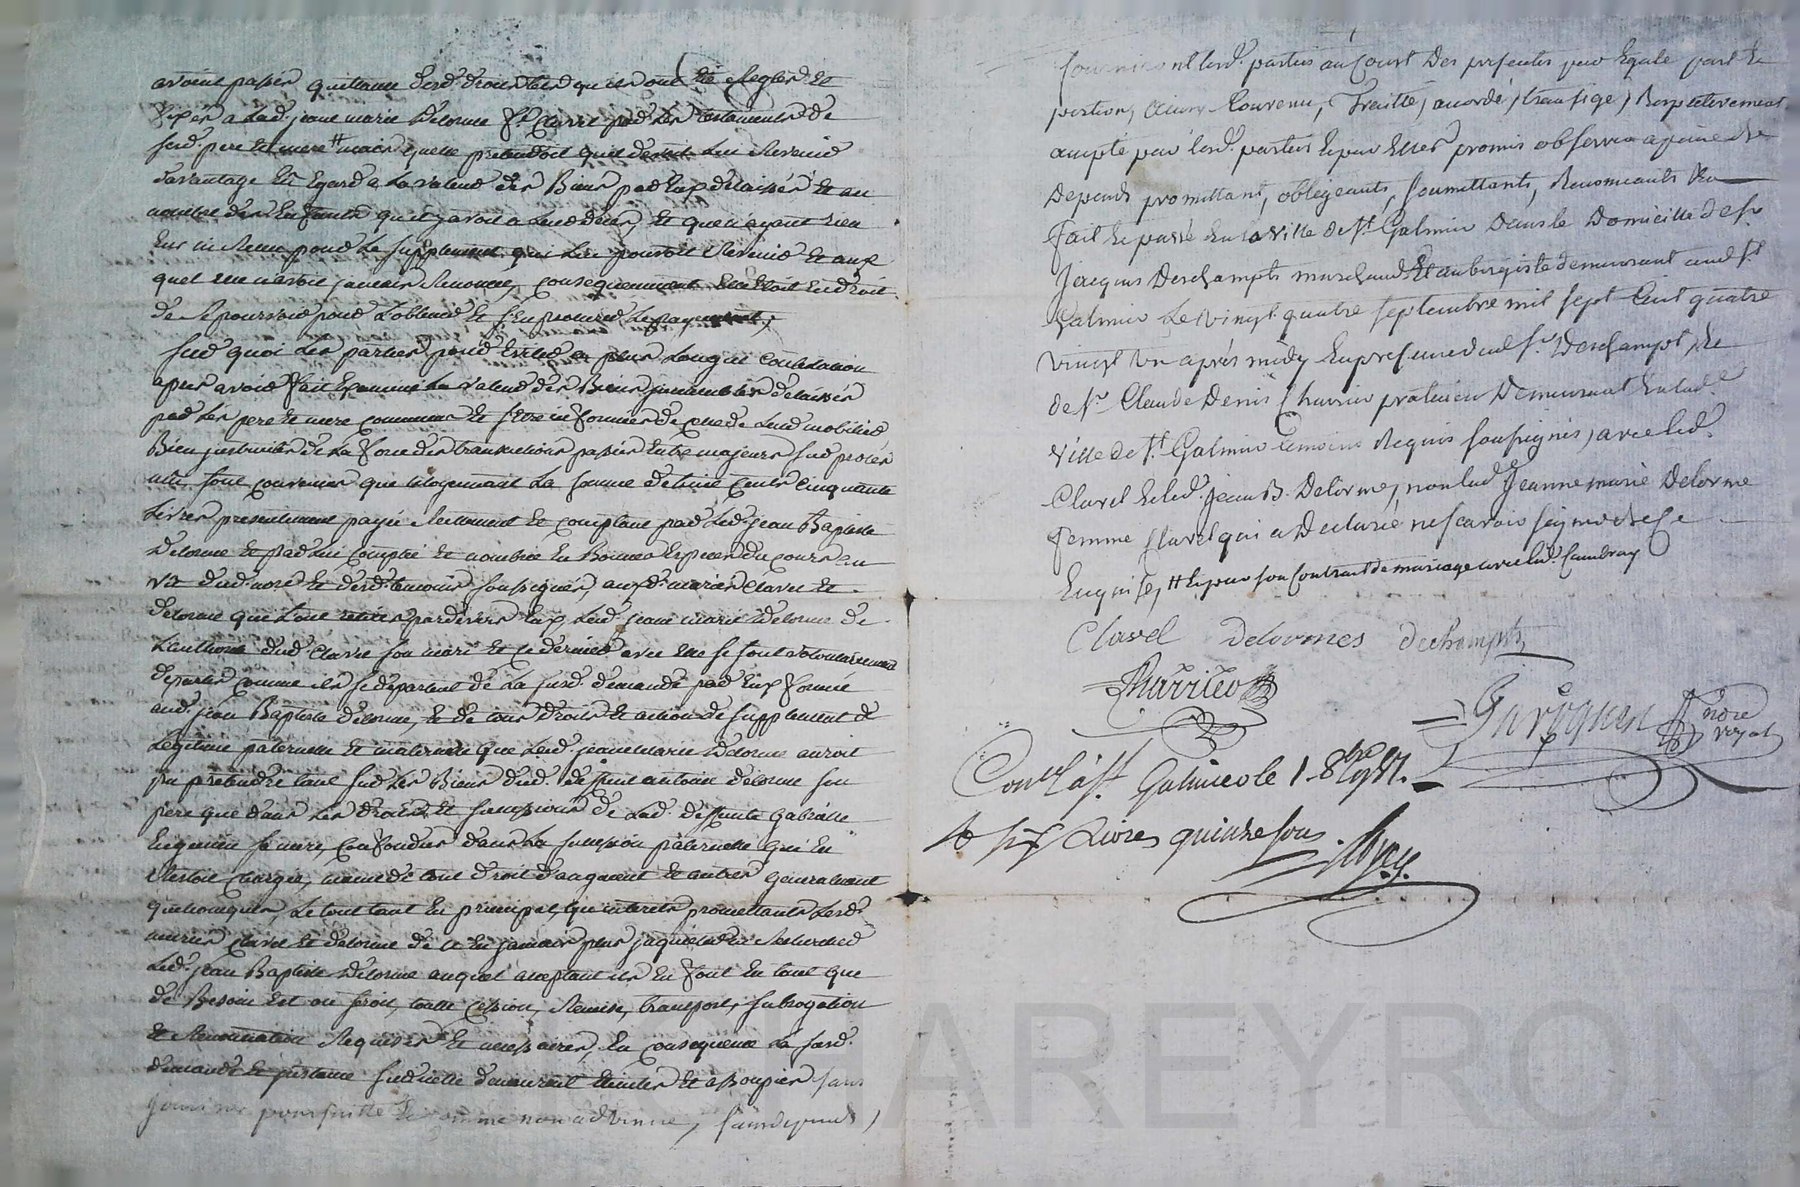 avoient passés quittance desd. droits tels qu'ils ont été reglés et
fixés a lad. jeane marie Delorme fe. Clavel par les testaments de
sesd. pere et mere # mais quelle pretendoit quil devoit lui revenir
davantage eu egard a la valeur des Biens par eux delaissés et au
nombre des enfants qu'il y avoit a leur deces, et que n'ayant rien
eu ni recu pour le supplement qui lui pouvoit revenir et aux
quel elle n'avoit jamais renoncé, consequemment elle etoit en droit
de se pourvoir pour l'obtenir et s'en procurer le payement,
sur quoi les parties pour eviter a plus longue contestation
apres avoir fait examiner la valeur des Biens immeubles delaissés
par les pere et mere communs et s'etre informés de ceux de leur mobilier
Bien instruites de la force des transactions passées entre majeurs sur procés
ont convenues que moyennant la somme de cents cinquante
Livres presentement payée reellement et comptant par led. jean Baptiste
Delorme et par lui comptée et nombrée en Bonnes Especes du cours en
vue dud. nore. et desd. temoins soussignés, auxd. mariés Clavel et
delorme qui l'ont retirée pardevers eux, lad. jeane marie Delorme de
l'authorité dud. Clavel son mari et ce dernier avec elle se sont volontairement
departis comme ils se departent de la susd. demande par eux formée
aud. jean Baptiste delorme, et de tous droits et action de supplement de
Legitime paternelle et maternelle que lad. jeane marie Delorme auroit
pu pretendre tant sur les Biens dud. deffunt antoine delorme son
pere que dans les droits et succession de lad. deffunte Gabrielle
sa mere, confondus dans la succession paternelle qui en
restoit chargée, meme de tout droit d'augment et autres generalement
quelconques, le tout tant en principal, que interets promettants lesd.
mariés clavel et delorme de ne en jamais plus inquieter ni rechercher
led. jean Baptiste Delorme auquel acceptant ils en font en tant que
de Besoin est ou seroit, toute cession, Remise, transport, subrogation
et Renonciation Requises et necessaires, en consequence la susd.
demande et instance sur icelle demeurent eteintes et assoupies sans
pouvoir poursuitte et comme non advenue, sans depends,
fourniront lesd. parties au Cout Des presentes par Egale part et
portion, Ainsy Convenu, Traitté, accordé, transigé, Respectivement
accepté par lesd. parties et par Elles promis observer a peine de
Depends promettant, obligeants, soumettants, Renonceants &a
fait et passé en la ville de St. Galmier Dans le Domicille de sr.
Jacques Deschampts marchand et aubergiste demeurant aud. St.
Galmier Le vingt quatre septembre mil sept Cent quatre
vingt un après midy En presence dud. sr. Deschampt, et
de sr. Claude Denis Charrier praticien Demeurant en lad.e
ville de St. Galmier temoins Requis soussignés, avec led.
Clavel et led. jean B. Delorme, non lad. Jeanne marie Delorme
femme Clavel qui a Declaré ne scavoir signer de ce
Enquise, # et par son Contract de mariage avec led.
Clavel Delormes dechampts
Charrier
nore royal
Conlé a St. Galmier le 1 8bre 1781.
R six Livres quinze sous.
CHAREYRON